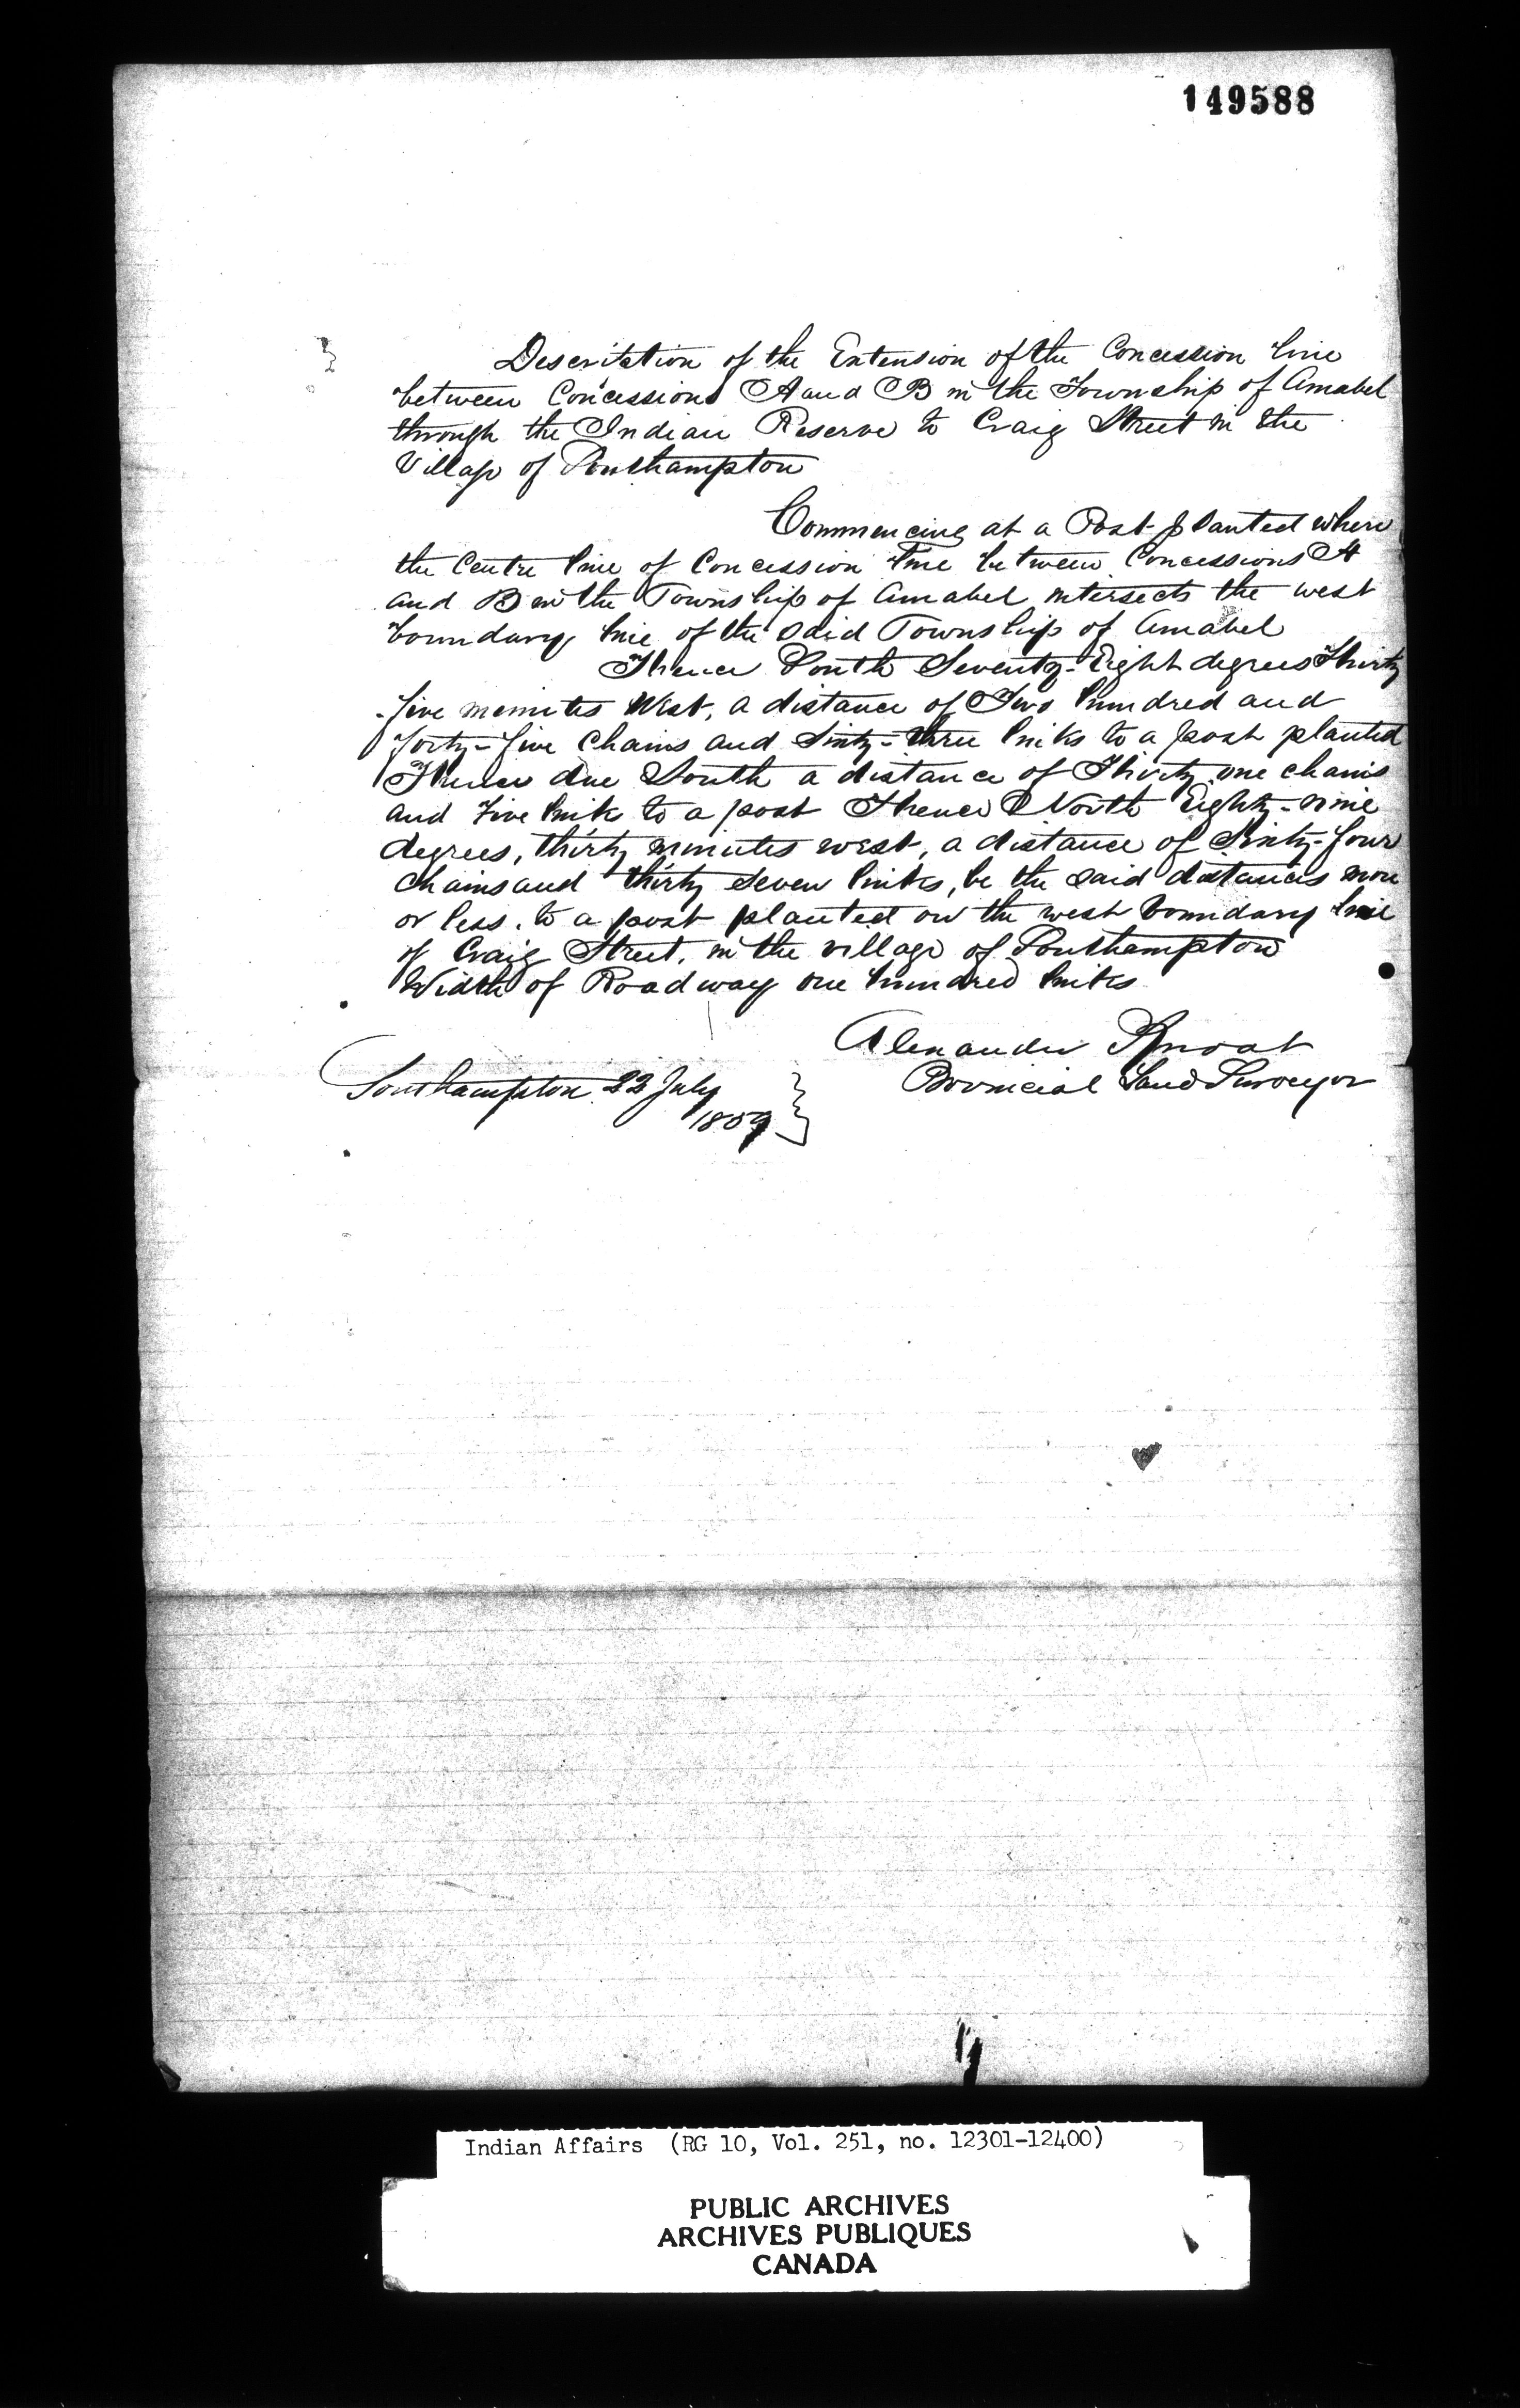 149588
Descritation of the Extension of the Concession line
between Concessions A and B in the Township of Amabel
through the Indian Reserve to Craig Street in the
Village of Southampton
Commencing at a Post planted where
the Centre line of Concession line between Concessions A
and B in the Township of Amabel intersects the west
boundary line of the said Township of Amabel
Thence South Seventy-Eight degrees Thirty
-five minutes West, a distance of Two hundred and
forty-five Chains and Sixty-three links to a post planted
Thence due South a distance of Thirty one chains
and Five link to a post Thence North Eighty-nine
degrees, thirty minutes west, a distance of Sixty-four
chains and thirty seven links, be the said distances more
or less, to a post planted on the west boundary line
of Craig Street, in the village of Southampton
Width of Roadway one hundred links
Alexander
Provincial Land Surveyor
Southampton 22 July
1859
Indian Affairs (RG 10, Vol. 251, no. 12301-12400)
PUBLIC ARCHIVES
ARCHIVES PUBLIQUES
CANADA